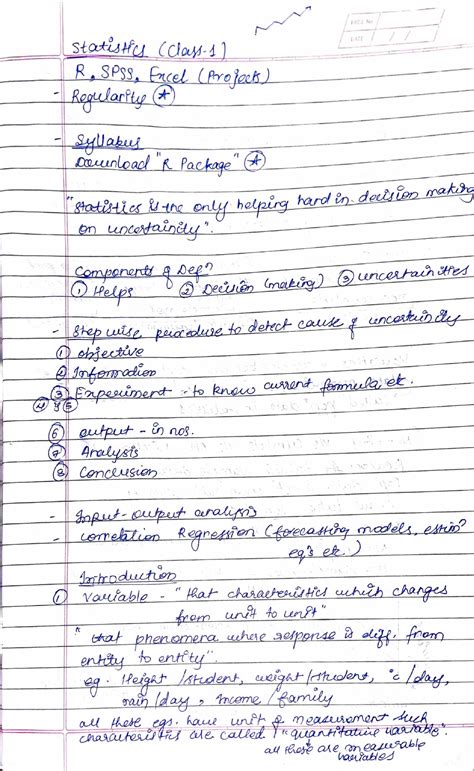 PAGE No.
DATE / /
Statistics (Class-1)
R, SPSS, Excel (Project)
- Regularity *
- Syllabus
Download "R Package" *
"Statistics is the only helping hand in decision making
on uncertainity".
Components of Defn
① Helps ② Decision (making) ③ uncertainities
- Step wise procedure to detect cause of uncertainity
① objective
② Information
③ Experiment - to know current formula, etc.
④ & ⑤
⑥ output - in nos.
⑦ Analysis
⑧ Conclusion
- Input-output analysis
- correlation Regression (forecasting models, estimn
eq's etc.)
Introduction
① Variable - "that characteristics which changes
from unit to unit"
"that phenomera where response is diff. from
entity to entity".
eg. Height /student, weight /student, °c /day,
rain /day, income /family
all these egs. have unit of measurement such
characteristics are called "quantitative variable".
all these are measurable
variables